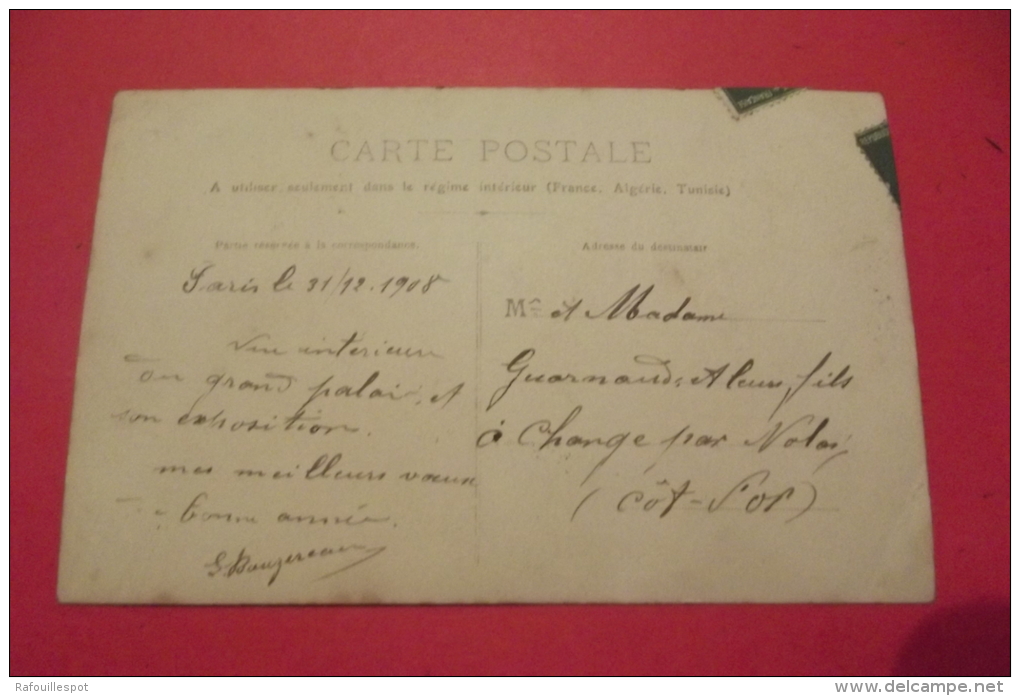 CARTE POSTALE
A utiliser seulement dans le régime intérieur (France, Algérie, Tunisie)
Partie réservée à la correspondance.
Adresse du destinataire
Paris le 31/12.1908
Vue interieure
du grand palais, et
son exposition.
mes meilleurs vœux
bonne année.
M et Madame
et leur fils
à Change par Nolay
(Côt-d'or)
Rafouillespot
www.delcampe.net